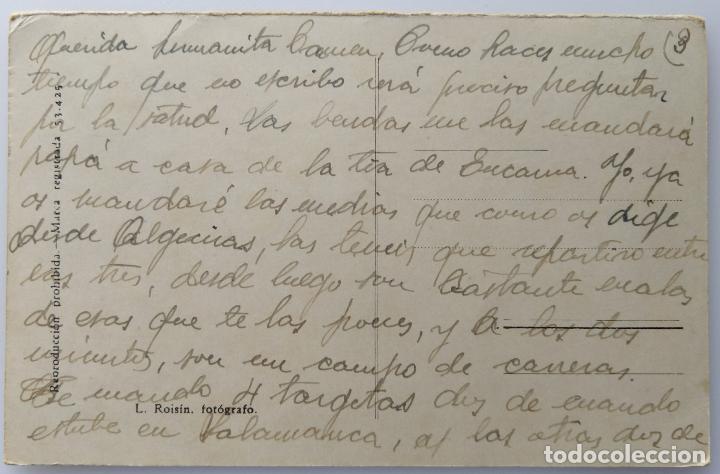 Querida hermanita Carmen, Como hace mucho (3
tiempo que no escribo será preciso preguntar
por la salud, Las bendas me las mandará
papá a casa de la tia de Encarna. Yo, ya
os mandaré las medias que como os dige
desde Algeciras, las teneis que repartiro entre
las tres, desde luego son bastante malas
de esas que te las pones, y a los dos
minutos, son un campo de carreras.
Te mando 4 targetas dos de cuando
estube en Salamanca, y las otras dos de
Reproducción prohibida. Marca registrada 53.425
L. Roisin, fotógrafo.
todocoleccion